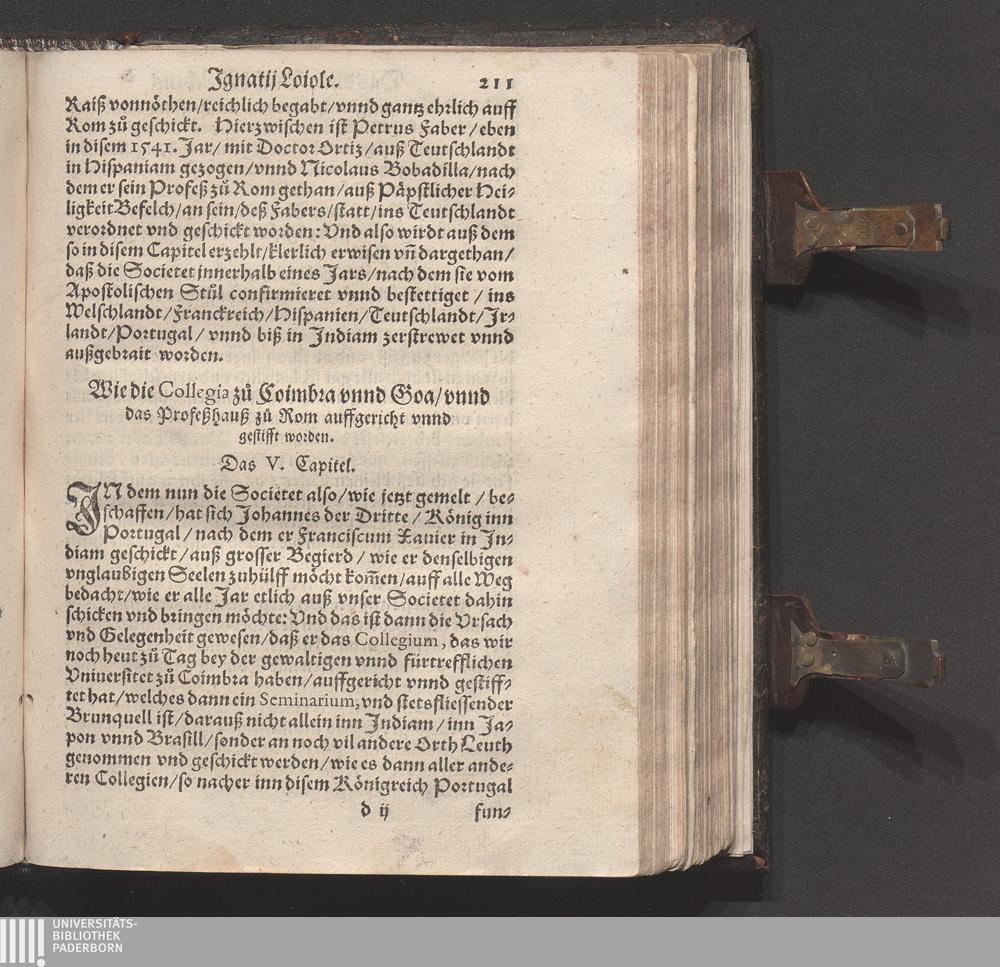 Ignatij Loiole. 211
Raiß vonnöthen/reichlich begabt/vnnd gantz ehrlich auff
Rom zů geschickt. Hierzwischen ist Petrus Faber/eben
in disem 1541. Jar/ mit Doctor Ortiz/auß Teutschlandt
in Hispaniam gezogen/vnnd Nicolaus Bobadilla/nach
dem er sein Profeß zů Rom gethan/auß Päpstlicher Hei-
ligkeit Befelch/an sein/deß Fabers/statt/ins Teutschlandt
verordnet vnd geschickt worden: Vnd also wirdt auß dem
so in disem Capitel erzehlt/klerlich erwisen vñ dargethan/
daß die Societet innerhalb eines Jars/nach dem sie vom
Apostolischen Stůl confirmieret vnnd bestettiget / ins
Welschlandt/Franckreich/Hispanien/Teutschlandt/Ir-
landt/Portugal/ vnnd biß in Indiam zerstrewet vnnd
außgebrait worden.
Wie die Collegia zů Coimbra vnnd Goa/vnnd
das Profeßhauß zů Rom auffgericht vnnd
gestifft worden.
Das V. Capitel.
IN dem nun die Societet also/wie jetzt gemelt / be-
schaffen/hat sich Johannes der Dritte / König inn
Portugal / nach dem er Franciscum Xauier in In-
diam geschickt / auß grosser Begierd / wie er denselbigen
vnglaubigen Seelen zuhülff möcht kom̄en/auff alle Weg
bedacht/wie er alle Jar etlich auß vnser Societet dahin
schicken vnd bringen möchte: Vnd das ist dann die Vrsach
vnd Gelegenheit gewesen/daß er das Collegium, das wir
noch heut zů Tag bey der gewaltigen vnnd fürtrefflichen
Vniuersitet zů Coimbra haben/auffgericht vnnd gestiff-
tet hat/welches dann ein Seminarium, vnd stetsfliessender
Brunquell ist/darauß nicht allein inn Indiam/inn Ja-
pon vnnd Brasill/sonder an noch vil andere Orth Leuth
genommen vnd geschickt werden/wie es dann aller ande-
ren Collegien/so nacher inn disem Königreich Portugal
d ij fun-
UNIVERSITÄTS-
BIBLIOTHEK
PADERBORN